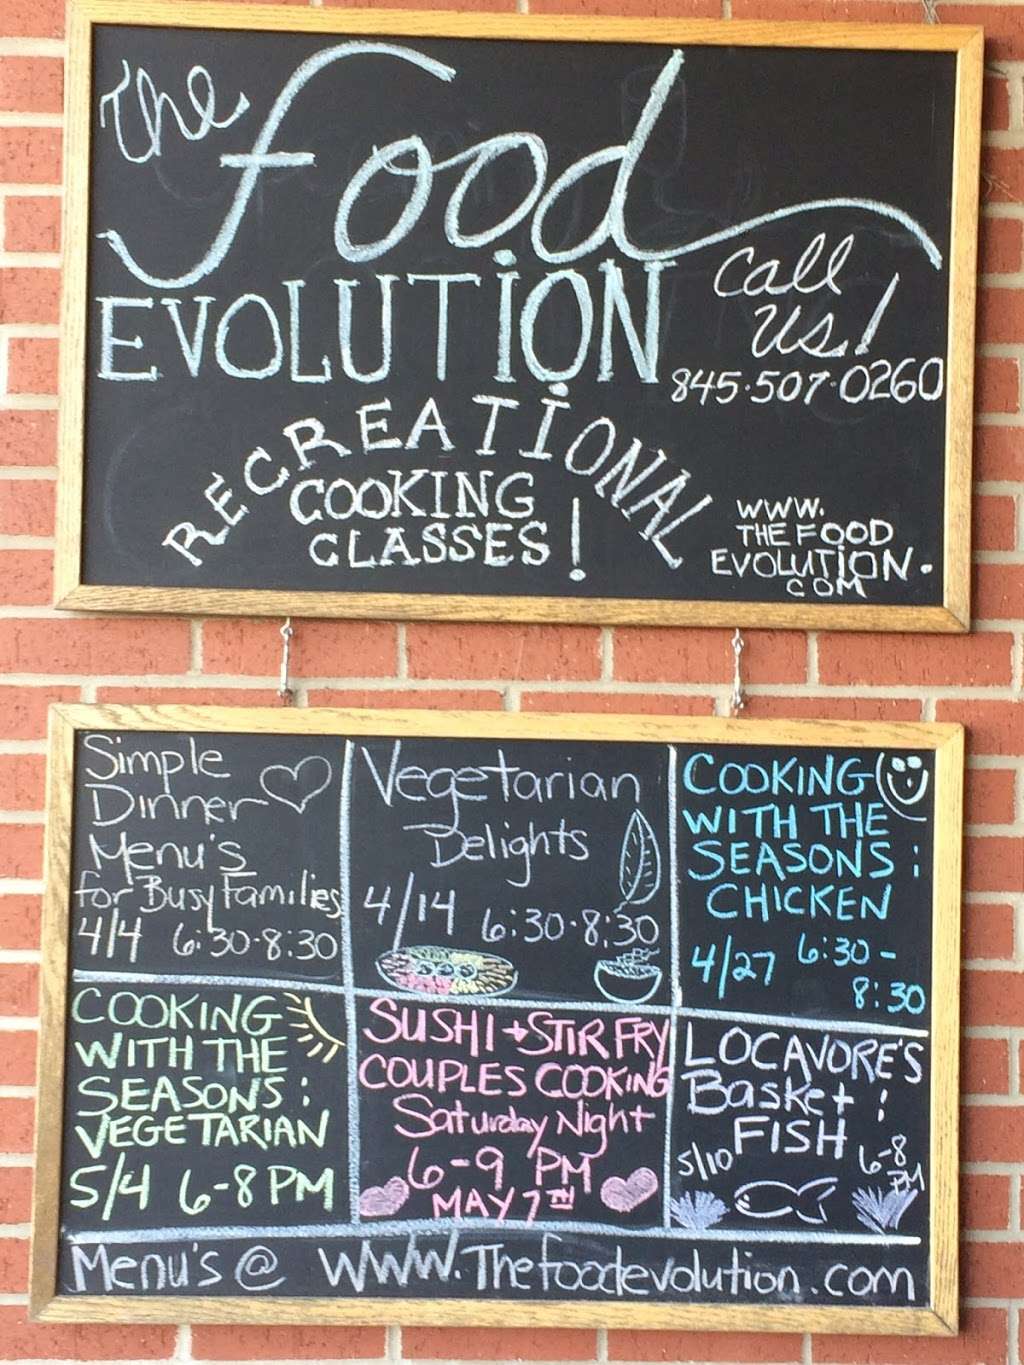 The Food
EVOLUTION
Call
Us!
845.507.0260
RECREATIONAL
COOKING
CLASSES!
WWW.
THE FOOD
EVOLUTION.
COM
Simple
Dinner
Menu's
for Busy Families
4/4 6:30-8:30
Vegetarian
Delights
4/14 6:30-8:30
COOKING
WITH THE
SEASONS:
CHICKEN
4/27 6:30-
8:30
COOKING
WITH THE
SEASONS:
VEGETARIAN
5/4 6-8 PM
SUSHI + STIR FRY
COUPLES COOKING
Saturday Night
6-9 PM
MAY 7TH
LOCAVORE'S
Basket:
FISH
5/10 6-8
PM
Menu's @ www.Thefoodevolution.com